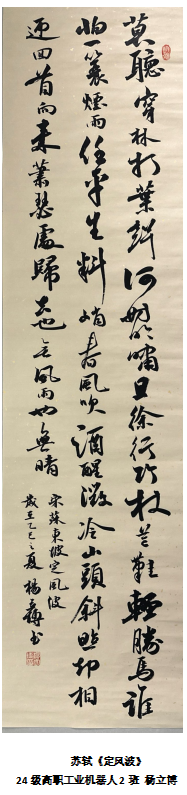 莫聽穿林打葉聲何妨吟嘯且徐行竹杖芒鞋輕勝馬誰
怕一蓑煙雨任平生料峭春風吹酒醒微冷山頭斜照却相
迎回首向来蕭瑟處歸去也无風雨也無晴
宋蘇東坡定風波
歲在乙巳之夏楊薄书
苏轼《定风波》
24级高职工业机器人2班 杨立博